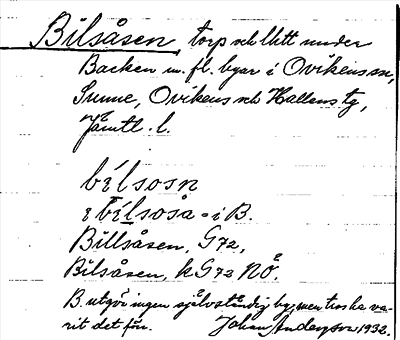 Bilsåsen, torp och lhtt under
Backen m. fl. byar i Ovikens sn,
Sunne, Ovikens och Hallens tg,
Jämtl. l.
bílsosn
i bílsosa - i B.
Billsåsen, G72,
Bilsåsen, k G72 NÖ.
B. utgör ingen självständig by, men torde ha va-
rit det förr. Johan Anderson 1932.